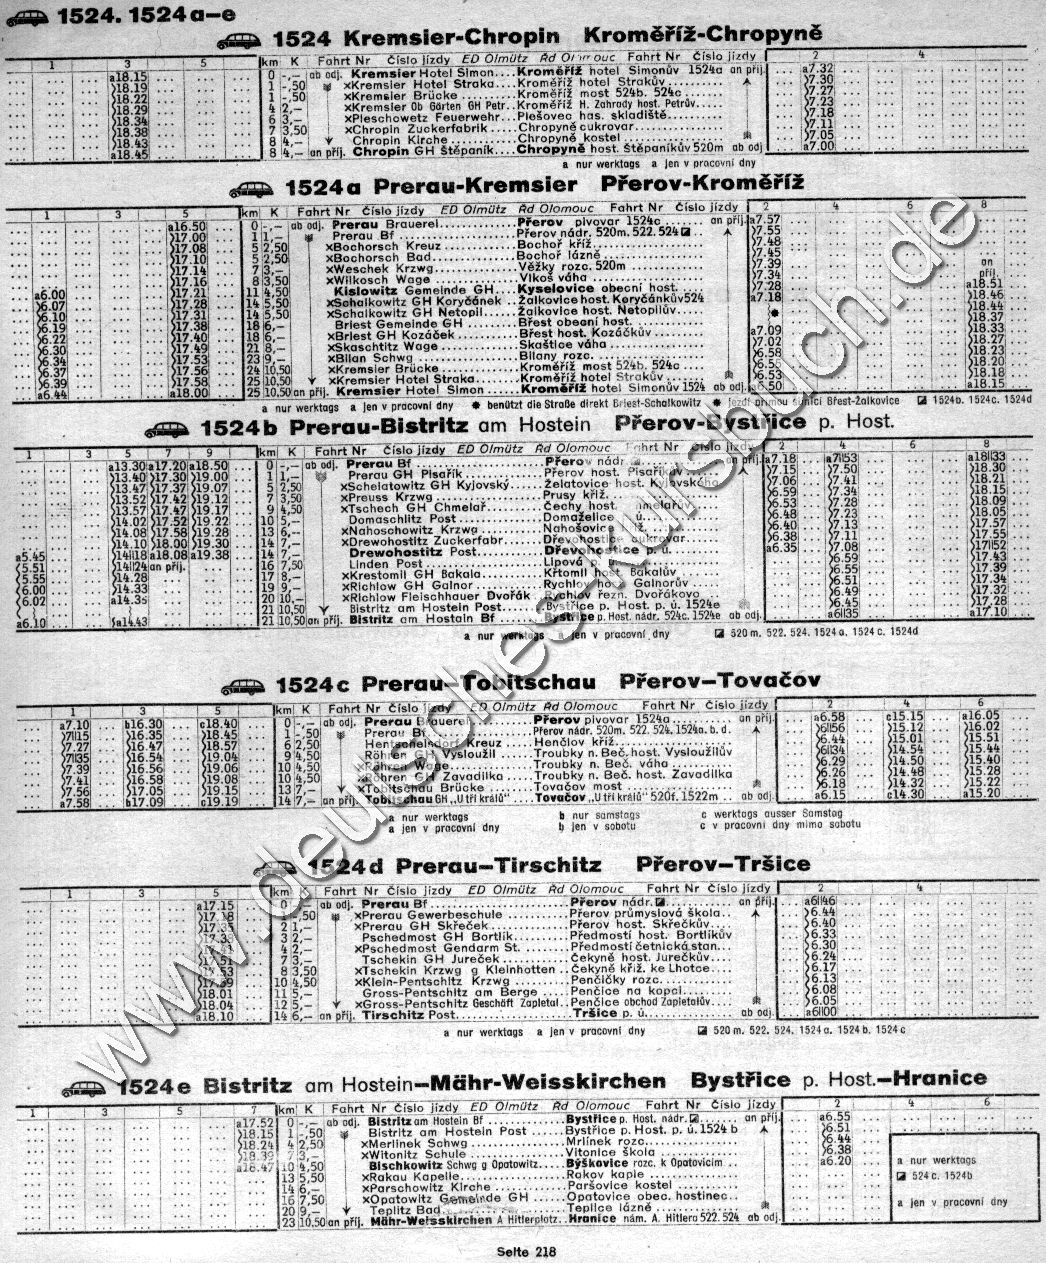 1524. 1524 a–e
1524 Kremsier-Chropin Kroměříž-Chropyně
1 3 5 km K Fahrt Nr Číslo jízdy ED Olmütz Fahrt Nr Číslo jízdy 2 4
a18.15 0 -,- ab odj. Kremsier Hotel Simon.... Kroměříž hotel Simonův 1524a an příj. a7.32
18.19 1 -,50 xKremsier Hotel Straka.... Kroměříž hotel Strakův 7.30
18.22 1 -,50 xKremsier Brücke Kroměříž most 524b. 524c 7.27
18.29 4 2,— xKremsier Ob Gärten GH Petr.. Kroměříž H. Zahrady host. Petrův 7.23
18.34 6 3,— xPleschowetz Feuerwehr... Plešovec has. skladiště 7.18
18.38 7 3,50 xChropin Zuckerfabrik Chropyně cukrovar 7.11
18.43 8 4,— Chropin Kirche Chropyně kostel 7.05
a18.45 8 4,— an příj. Chropin GH Štěpaník.... Chropyně host. Štěpaníkův 520m ab odj a7.00
a nur werktags a jen v pracovní dny
1524a Prerau-Kremsier Přerov-Kroměříž
1 3 5 km K Fahrt Nr Číslo jízdy ED Olmütz Řd Olomouc Fahrt Nr Číslo jízdy 2 8
a16.50 0 -,— ab odj. Prerau Brauerei Přerov pivovar 1524c an příj. a7.57
17.00 1 1,— Prerau Bf Přerov nádr. 520m. 522. 524 7.55
17.08 5 2,50 xBochorsch Kreuz Bochoř kříž 7.48
17.10 5 2,50 xBochorsch Bad Bochoř lázně 7.45
17.14 7 3,— xWeschek Krzwg Věžky rozc. 520m 7.39 an
17.16 8 3,50 xWilkosch Wage Vlkoš váha 7.34 příj.
a6.00 17.21 11 4,50 Kislowitz Gemeinde GH Kyselovice obecní host. 7.28 a18.51
6.07 17.28 14 5,50 xSchalkowitz GH Koryčánek .. Žalkovice host. Koryčánkův 524 a7.18 18.46
6.10 17.31 14 5,50 xSchalkowitz GH Netopil Žalkovice host. Netopilův 18.44
6.19 17.38 18 6,— Briest Gemeinde GH Břest obecní host. 18.37
6.22 17.40 18 6,— xBriest GH Kozáček Břest host. Kozáčkův a7.09 18.33
6.30 17.49 21 8,— xSkaschtitz Wage Skaštice váha 7.02 18.27
6.34 17.53 23 9,— xBilan Schwg Bílany rozc. 6.58 18.23
6.37 17.56 24 10,50 xKremsier Brücke Kroměříž most 524b. 524c 6.55 18.20
6.39 17.58 25 10,50 xKremsier Hotel Straka Kroměříž hotel Strakův 6.53 18.18
a6.44 a18.00 25 10,50 an příj. Kremsier Hotel Simon Kroměříž hotel Simonův 1524 ab odj. a6.50 18.15
a nur werktags a jen v pracovní dny benützt die Straße direkt Briest-Schalkowitz jezdí přímou silnicí Břest-Žalkovice 1524b. 1524c. 1524d
1524b Prerau-Bistritz am Hostein Přerov-Bystřice p. Host.
1 3 5 7 9 km K Fahrt Nr Číslo jízdy ED Olmütz Řd Olomouc Fahrt Nr Číslo jízdy 2 4 8
a13.30 a17.20 a18.50 0 -,— ab odj. Prerau Bf Přerov nádr. an příj. a7.18 a7.53 a18.33
13.40 17.30 19.00 1 1,— Prerau GH Pisařík Přerov host. Pisaříkův 7.15 7.50 18.30
13.47 17.37 19.07 5 2,50 xSchelatowitz GH Kyjovský Želatovice host. Kyjovského 7.06 7.41 18.21
13.52 17.42 19.12 7 3,50 xPreuss Krzwg Prusy křiž. 6.59 7.34 18.15
13.57 17.47 19.17 9 4,50 xTschech GH Chmelař Čechy host. Chmelařův 6.53 7.28 18.09
14.02 17.52 19.22 10 5,— Domaschlitz Post Domaželice p. ú. 6.48 7.23 18.05
14.08 17.58 19.28 13 6,— xNahoschowitz Krzwg Nahošovice křiž. 6.40 7.13 17.57
14.10 18.00 19.30 14 7,— xDrewohostitz Zuckerfabr Dřevohostice cukrovar 6.38 7.11 17.55
a5.45 14.18 a18.08 a19.38 14 7,— Drewohostitz Post Dřevohostice p. ú. a6.35 7.08 17.52
5.51 14.24 an příj. 16 7,50 Linden Post Lipová 6.59 17.43
5.55 14.28 17 8,— xKrestomil GH Bakala Křtomil host. Bakalův 6.55 17.39
6.00 14.33 19 9,— xRichlow GH Galnor Rychlov host. Galnorův 6.51 17.34
6.02 a14.35 20 10,— xRichlow Fleischhauer Dvořák Rychlov řezn. Dvořákovo 6.49 17.32
21 10,50 Bistritz am Hostein Post Bystřice p. Host. p. ú. 1524e 6.45 17.28
a6.10 a14.43 21 10,50 an příj. Bistritz am Hostein Bf Bystřice p. Host. nádr. 524c. 1524e ab odj. a6.35 17.10
a nur werktags a jen v pracovní dny 520 m. 522. 524. 1524 a. 1524 c. 1524d
1524c Prerau–Tobitschau Přerov–Tovačov
1 3 5 km K Fahrt Nr Číslo jízdy ED Olmütz Řd Olomouc Fahrt Nr Číslo jízdy 2 4 6
a7.10 b16.30 c18.40 0 -,— ab odj. Prerau Brauerei Přerov pivovar 1524a an příj. a6.58 c15.15 a16.05
7.15 16.35 18.45 1 -,50 Prerau Bf Přerov nádr. 520m. 522. 524. 1524a. b. d. 6.56 15.12 16.02
7.27 16.47 18.57 6 2,50 Hentschelndorf Kreuz Henčlov kříž 6.44 15.01 15.51
7.35 16.54 19.04 9 4,50 Röhren GH Vysloužil Troubky n. Beč. host. Vysloužilův 6.34 14.54 15.44
7.39 16.56 19.06 10 4,50 xRöhren Wage Troubky n. Beč. váha 6.29 14.50 15.40
7.41 16.58 19.08 10 4,50 xRöhren GH Zavadilka Troubky n. Beč. host. Zavadilka 6.26 14.48 15.28
7.56 17.05 19.15 13 7,— xTobitschau Brücke Tovačov most 6.18 14.32 15.22
a7.58 b17.09 c19.19 14 7,— an příj. Tobitschau GH „U tří králů“ Tovačov „U tří králů“ 520f. 1522m ab odj. a6.15 c14.30 a15.20
a nur werktags b nur samstags c werktags ausser Samstag
a jen v pracovní dny b jen v sobotu c v pracovní dny mimo sobotu
1524d Prerau–Tirschitz Přerov–Tršice
1 3 5 km K Fahrt Nr Číslo jízdy ED Olmütz Řd Olomouc Fahrt Nr Číslo jízdy 2 4
a17.15 0 ab odj. Prerau Bf Přerov nádr. an příj. a6.46
1 -,50 xPrerau Gewerbeschule Přerov průmyslová škola 6.44
2 1,— xPrerau GH Skřeček Přerov host. Skřečkův 6.40
3 2,— Pschedmost GH Bortlík Předmostí host. Bortlíkův 6.33
4 2,— xPschedmost Gendarm St. Předmostí četnická stan. 6.30
7 3,— Tschekin GH Jureček Čekyně host. Jurečkův 6.24
8 3,50 xTschekin Krzwg g Kleinhotten .. Čekyně křiž. ke Lhotce 6.17
10 4,50 xKlein-Pentschitz Krzwg Penčičky rozc. 6.13
18.01 11 5,— Gross-Pentschitz am Berge Penčice na kopci 6.08
18.04 12 5,— xGross-Pentschitz Geschäft Zapletal Penčice obchod Zapletalův 6.05
a18.10 14 6,— an příj. Tirschitz Post Tršice p. ú. ab odj. a6.00
a nur werktags a jen v pracovní dny 520 m. 522. 524. 1524 a. 1524 b. 1524 c
1524e Bistritz am Hostein–Mähr-Weisskirchen Bystřice p. Host.–Hranice
1 3 5 7 km K Fahrt Nr Číslo jízdy ED Olmütz Řd Olomouc Fahrt Nr Číslo jízdy 2 4 6
a17.52 0 -,— ab odj. Bistritz am Hostein Bf Bystřice p. Host. nádr. an příj. a6.55
18.15 1 -,50 Bistritz am Hostein Post Bystřice p. Host. p. ú. 1524 b 6.51
18.24 4 2,50 xMerlinek Schwg Mrlínek rozc. 6.44
18.39 7 3,— xWitonitz Schule Vítonice škola 6.38
a18.47 10 4,50 Bischkowitz Schwg g Opatowitz Býškovice rozc. k Opatovicím a6.20 a nur werktags
13 5,50 xRakau Kapelle Rakov kaple 524 c. 1524b
14 6,— xParschowitz Kirche Paršovice kostel
16 7,50 xOpatowitz Gemeinde GH Opatovice obec. hostinec a jen v pracovní dny
20 9,— Teplitz Bad Teplice lázně
23 10,50 an příj. Mähr-Weisskirchen A Hitlerplatz Hranice nám. A. Hitlera 522. 524 ab odj.
Seite 218
www.deutsches-kursbuch.de